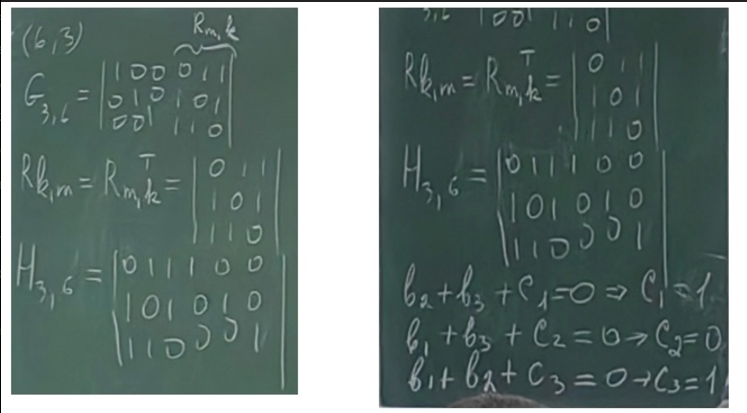 (6,3)
R_{m,k}
G_{3,6} = |1 0 0 0 1 1|
|0 1 0 1 0 1|
|0 0 1 1 1 0|
R_{k,m} = R_{m,k}^T = |0 1 1|
|1 0 1|
|1 1 0|
H_{3,6} = |0 1 1 1 0 0|
|1 0 1 0 1 0|
|1 1 0 0 0 1|
|0 0 1 1 1 0|
R_{k,m} = R_{m,k}^T = |0 1 1|
|1 0 1|
|1 1 0|
H_{3,6} = |0 1 1 1 0 0|
|1 0 1 0 1 0|
|1 1 0 0 0 1|
b_2 + b_3 + C_1 = 0 ⇒ C_1 = 1
b_1 + b_3 + C_2 = 0 → C_2 = 0
b_1 + b_2 + C_3 = 0 → C_3 = 1